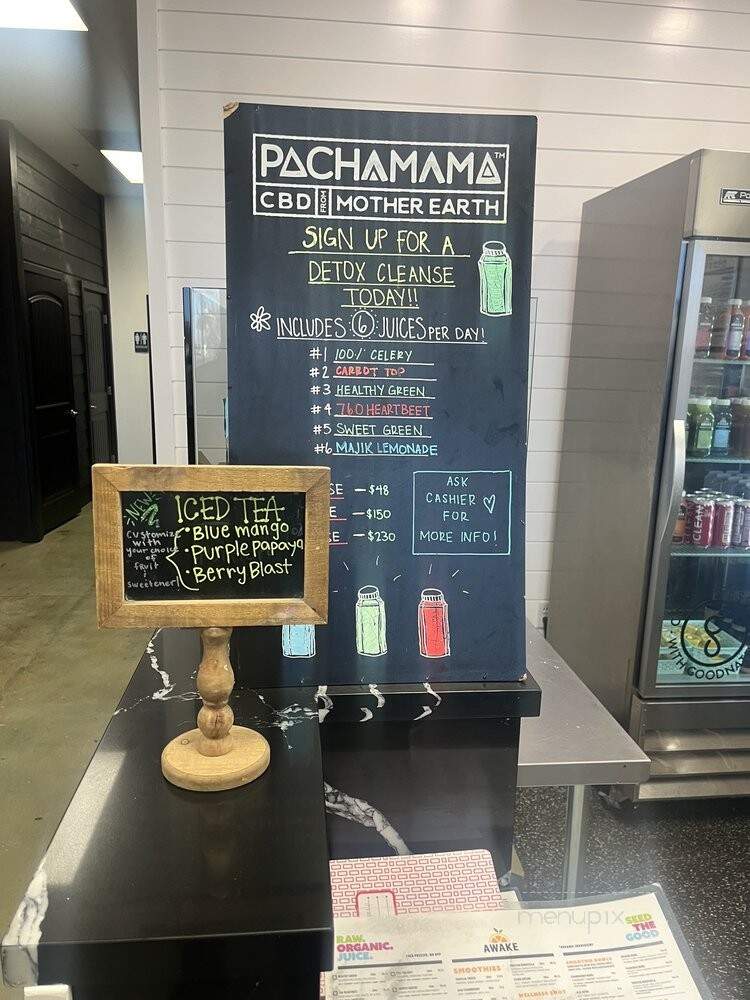 PACHAMAMA™
CBD FROM MOTHER EARTH
SIGN UP FOR A
DETOX CLEANSE
TODAY!!
INCLUDES 6 JUICES PER DAY!
#1 100% CELERY
#2 CARROT TOP
#3 HEALTHY GREEN
#4 760 HEARTBEET
#5 SWEET GREEN
#6 MAJIK LEMONADE
SE - $48
E - $150
SE - $230
ASK
CASHIER
FOR
MORE INFO!
NEW!
ICED TEA
Customize
with
your choice
of
fruit
&
sweetener!
• Blue mango
• Purple Papaya
• Berry Blast
CLEAN
WITH GOODNA
menupix
RAW.
ORGANIC.
JUICE.
AWAKE
SEED
THE
GOOD
SMOOTHIES
SMOOTHIE BOWLS
WELLNESS SHOT